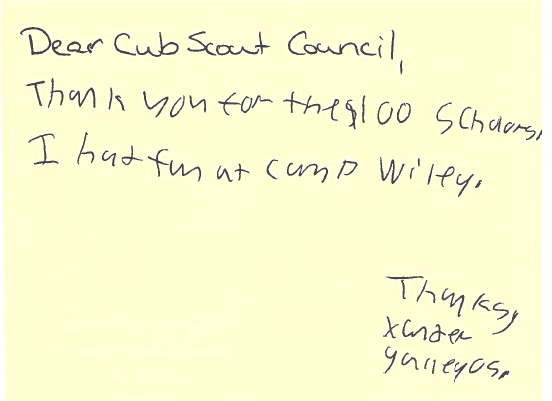 Dear Cub Scout Council,
Thank you for the $100 Schoars
I had fun at camp Wiley.
Thanks,
xander
gallegos.